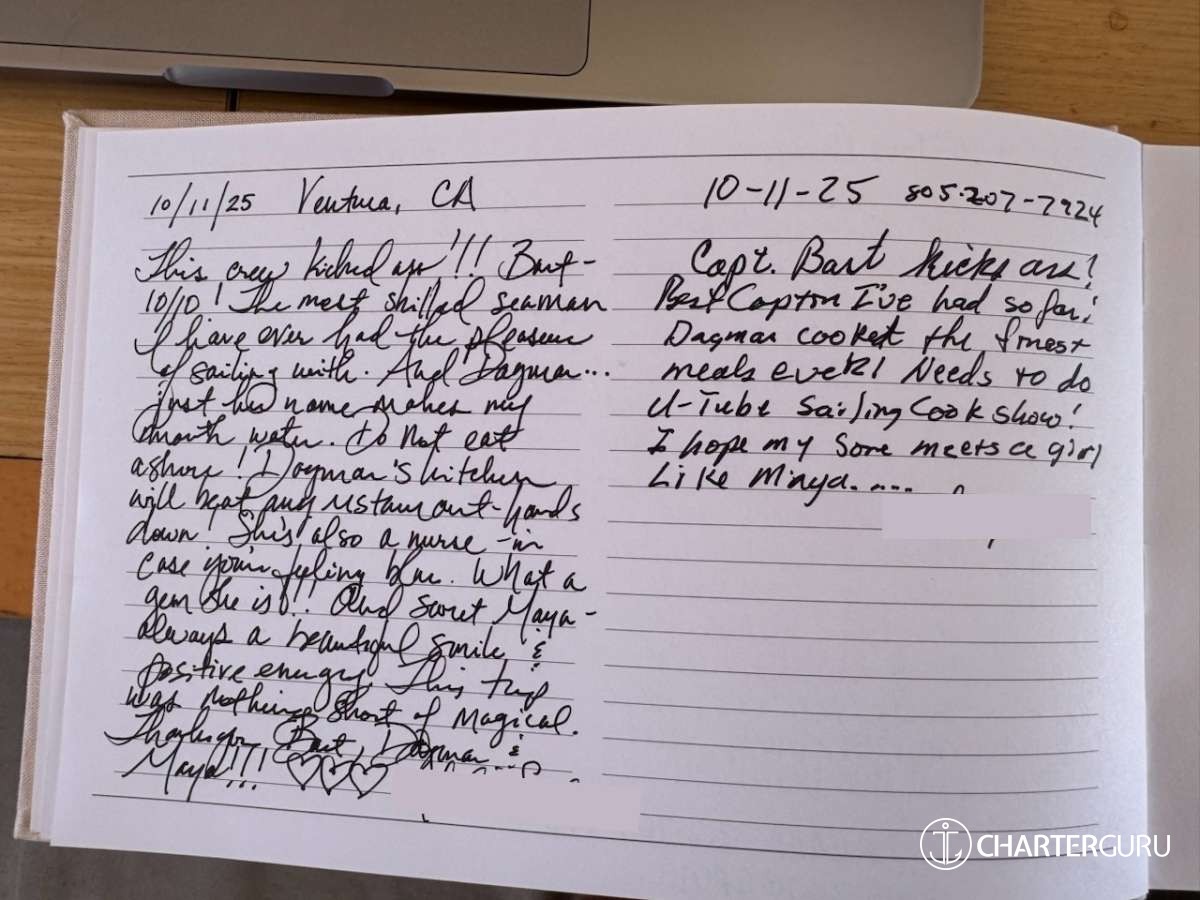 10/11/25 Ventura, CA
This crew kicked ass!!! Bart-
10/10! The most skilled seaman
I have ever had the pleasure
of sailing with. And Dagmar...
just her name makes my
mouth water. Do not eat
ashore! Dagmar's kitchen
will beat any restaurant-hands
down! She's also a nurse-in
case you're feeling blue. What a
gem she is!!! And sweet Maya-
always a beautiful smile &
positive energy. This trip
was nothing short of magical.
Thank you Bart, Dagmar &
Maya!!! ♡♡♡
10-11-25 805-207-7924
Capt. Bart kicks ass!
Best Capton I've had so far!
Dagmar cooket the finest
meals ever! Needs to do
U-Tube Sailing Cook show!
I hope my Sone meets a girl
Like Minya.....
CHARTERGURU